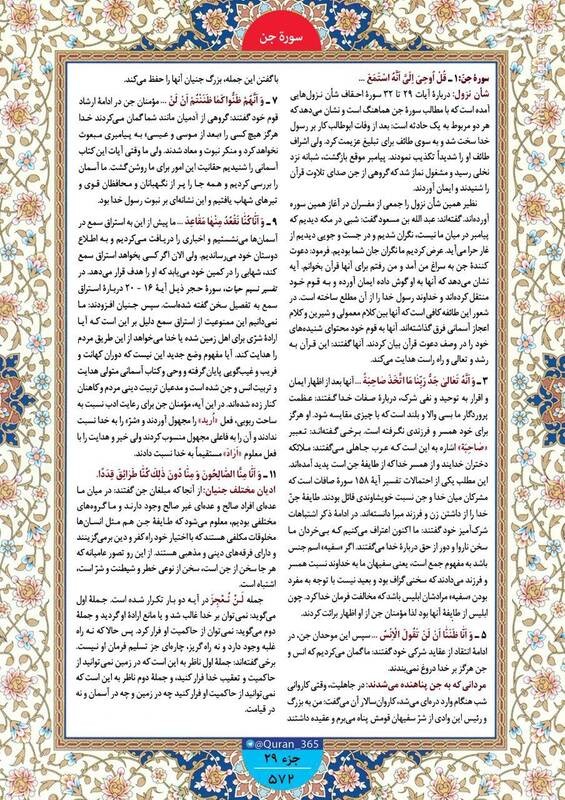 سورة جن
سورهٔ جن: ۱ ـ قُلْ أُوحِيَ إِلَيَّ أَنَّهُ اسْتَمَعَ ...
شأن نزول: دربارهٔ آیات ۲۹ تا ۳۲ سورهٔ احقاف شأن نزول‌هایی
آمده است که با مطالب سورهٔ جن هماهنگ است و نشان می‌دهد که
هر دو مربوط به یک حادثه است: بعد از وفات ابوطالب کار بر رسول
خدا سخت شد و به سوی طائف برای تبلیغ عزیمت کرد. ولی اشراف
طائف او را شدیداً تکذیب نمودند. پیامبر موقع بازگشت، شبانه نزد
نخلی رسید و مشغول نماز شد که گروهی از جن صدای تلاوت قرآن
را شنیدند و ایمان آوردند.
نظیر همین شأن نزول را جمعی از مفسران در آغاز همین سوره
آورده‌اند. گفته‌اند: عبد الله بن مسعود گفت: شبی در مکه دیدیم که
پیامبر در میان ما نیست، نگران شدیم و در جست و جویی دیدیم از
غار حرا می‌آید. عرض کردیم ما نگران جان شما بودیم. فرمود: دعوت
کنندهٔ جن به سراغ من آمد و من رفتم برای آنها قرآن بخوانم. آیه
نشان می‌دهد که آنها به او گوش داده ایمان آورده و به قوم خود
منتقل کرده‌اند و خداوند رسول خدا را از آن مطلع ساخته است. در
شعور این طائفه کافی است که آنها بین کلام معمولی و شیرین و کلام
اعجاز آسمانی فرق گذاشته‌اند. آنها به قوم خود محتوای شنیده‌های
خود را در وصف دعوت قرآن بیان کردند. آنها گفتند: این قرآن به
رشد و تعالی و راه راست هدایت می‌کند.
۳ ـ وَ أَنَّهُ تَعَالَىٰ جَدُّ رَبِّنَا مَا اتَّخَذَ صَاحِبَةً ... آنها بعد از اظهار ایمان
و اقرار به توحید و نفی شرک، دربارهٔ صفات خدا گفتند: عظمت
پروردگار ما بسی والا و بلند است که با چیزی مقایسه شود. او هرگز
برای خود همسر و فرزندی نگرفته است. برخی گفته‌اند: تعبیر
«صَاحِبَةً» اشاره به این است که عرب جاهلی می‌گفتند: ملائکه
دختران خدایند و از همسر خدا که از طایفهٔ جن است پدید آمده‌اند.
این مطلب یکی از احتمالات تفسیر آیهٔ ۱۵۸ سورهٔ صافات است که
مشرکان میان خدا و جن نسبت خویشاوندی قائل بودند. طایفهٔ جنّ
خدا را از داشتن زن و فرزند مبرا دانسته‌اند. در ادامهٔ ذکر اشتباهات
شرک‌آمیز خود گفتند: ما اکنون اعتراف می‌کنیم که بی‌خردان ما
سخن ناروا و دور از حق دربارهٔ خدا می‌گفتند. اگر «سفیه» اسم جنس
باشد به مفهوم جمع است، یعنی سفیهان ما به خداوند نسبت همسر
و فرزند می‌دادند که سخنی گزاف بود و بعید نیست با توجه به مفرد
بودن «سفیه» مرادشان ابلیس باشد که مخالفت فرمان خدا کرد. چون
ابلیس از طایفهٔ آنها بود لذا مؤمنان جن از او اظهار برائت کردند.
۵ ـ وَ أَنَّا ظَنَنَّا أَنْ لَنْ تَقُولَ الْإِنْسُ ... سپس این موحدان جن، در
ادامهٔ انتقاد از عقاید شرکی خود گفتند: ما گمان می‌کردیم که انس و
جن هرگز بر خدا دروغ نمی‌بندند.
مردانی که به جن پناهنده می‌شدند: در جاهلیت، وقتی کاروانی
شب هنگام وارد دره‌ای می‌شد، کاروان‌سالار آن می‌گفت: من به بزرگ
و رئیس این وادی از شرّ سفیهان قومش پناه می‌برم و عقیده داشتند
با گفتن این جمله، بزرگ جنیان آنها را حفظ می‌کند.
۷ ـ وَ أَنَّهُمْ ظَنُّوا كَمَا ظَنَنْتُمْ أَنْ لَنْ ... مؤمنان جن در ادامهٔ ارشاد
قوم خود گفتند: گروهی از آدمیان مانند شما گمان می‌کردند خدا
هرگز هیچ کسی را (بعد از موسی و عیسی) به پیامبری مبعوث
نخواهد کرد و منکر نبوت و معاد شدند. ولی ما وقتی آیات این کتاب
آسمانی را شنیدیم حقانیت این امور برای ما روشن گشت. ما آسمان
را بررسی کردیم و همه جا را پر از نگهبانان و محافظان قوی و
تیرهای شهاب یافتیم و این نشانه‌ای بر نبوت رسول خدا بود.
۹ ـ وَ أَنَّا كُنَّا نَقْعُدُ مِنْهَا مَقَاعِدَ ... ما پیش از این به استراق سمع در
آسمان‌ها می‌نشستیم و اخباری را دریافت می‌کردیم و به اطلاع
دوستان خود می‌رساندیم. ولی الان اگر کسی بخواهد استراق سمع
کند، شهابی را در کمین خود می‌یابد که او را هدف قرار می‌دهد. در
تفسیر نسیم حیات، سورهٔ حجر ذیل آیهٔ ۱۶ - ۲۰ دربارهٔ استراق
سمع به تفصیل سخن گفته شده‌است. سپس جنیان افزودند: ما
نمی‌دانیم این ممنوعیت از استراق سمع دلیل بر این است که آیا
ارادهٔ شرّی برای اهل زمین شده یا خدا می‌خواهد از این طریق مردم
را هدایت کند. آیا مفهوم وضع جدید این نیست که دوران کهانت و
فریب و غیبگویی پایان گرفته و وحی و کتاب آسمانی متولی هدایت
و تربیت انس و جن شده است و مدعیان تربیت دینی مردم و کاهنان
کنار زده شده‌اند. در این آیه، مؤمنان جن برای رعایت ادب نسبت به
ساحت ربوبی، فعل «أُرِید» را مجهول آوردند و «شرّ» را به خدا نسبت
ندادند و آن را به فاعلی مجهول منسوب کردند ولی خیر و هدایت را با
فعل معلوم «أَرَادَ» مستقیماً به خدا نسبت دادند.
۱۱ ـ وَ أَنَّا مِنَّا الصَّالِحُونَ وَ مِنَّا دُونَ ذَٰلِكَ كُنَّا طَرَائِقَ قِدَدًا.
ادیان مختلف جنیان: از آنجا که مبلغان جن گفتند: در میان ما
عده‌ای افراد صالح و عده‌ای غیر صالح وجود دارند و ما گروه‌های
مختلفی بودیم، معلوم می‌شود که طایفهٔ جن هم مثل انسان‌ها
مخلوقات مکلفی هستند که با اختیار خود راه کفر و دین برمی‌گزینند
و دارای فرقه‌های دینی و مذهبی هستند. از این رو تصور عامیانه که
هر جا سخن از جن است، سخن از نوعی خطر و شیطنت و شرّ است،
اشتباه است.
جمله لَنْ نُعْجِزَ در آیه دو بار تکرار شده است. جملهٔ اول
می‌گوید: نمی‌توان بر خدا غالب شد و یا مانع ارادهٔ او گردید و جملهٔ
دوم می‌گوید: نمی‌توان از حاکمیت او فرار کرد. پس حالا که نه راه
غلبه وجود دارد و نه راه گریز، چاره‌ای جز تسلیم فرمان او نیست.
برخی گفته‌اند: جملهٔ اول ناظر به این است که در زمین نمی‌توانید از
حاکمیت و تعقیب خدا فرار کنید، و جملهٔ دوم ناظر به این است که
نمی‌توانید از حاکمیت او فرار کنید چه در زمین و چه در آسمان و نه
در قیامت.
@Quran_365
جزء ۲۹
۵۷۲